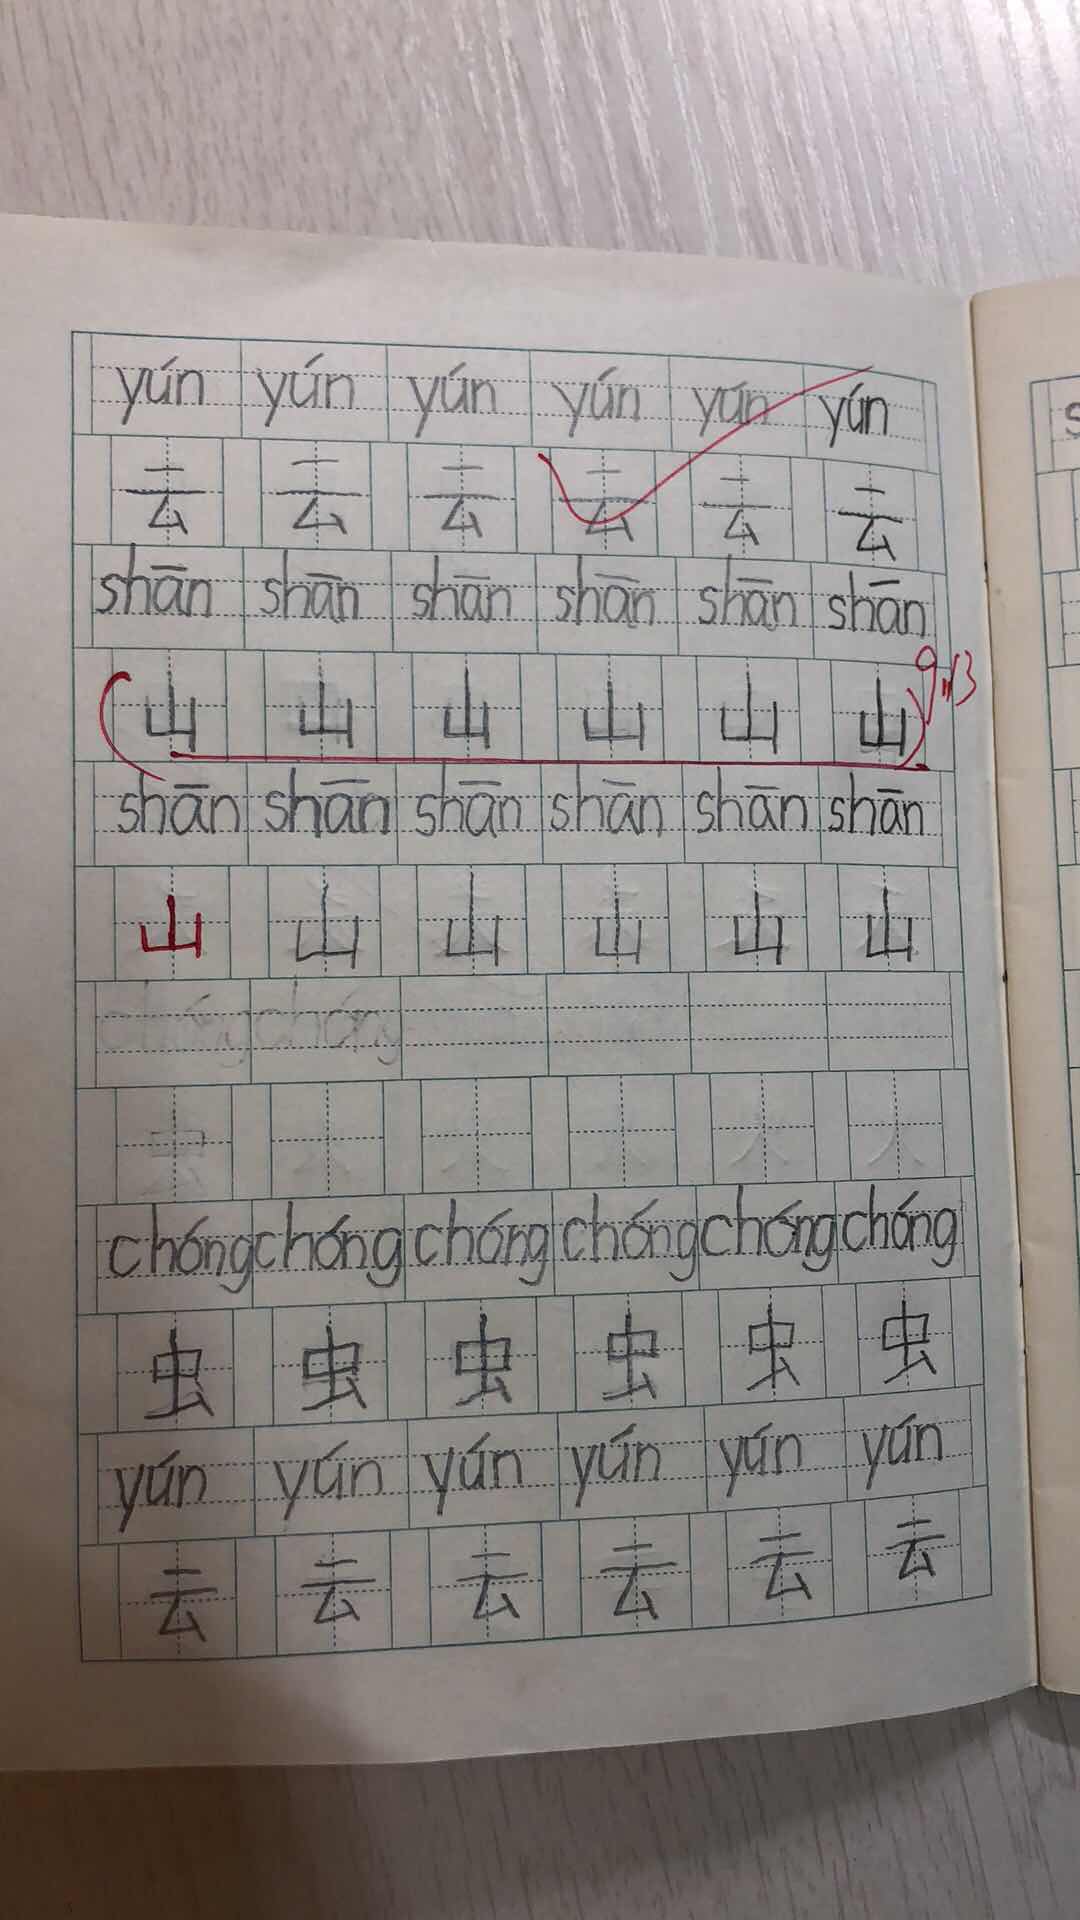 yún yún yún yún yún yún
云 云 云 云 云 云
shān shān shān shān shān shān
山 山 山 山 山 山
shān shān shān shān shān shān
山 山 山 山 山 山
chóng chóng chóng chóng chóng chóng
虫 虫 虫 虫 虫 虫
yún yún yún yún yún yún
云 云 云 云 云 云